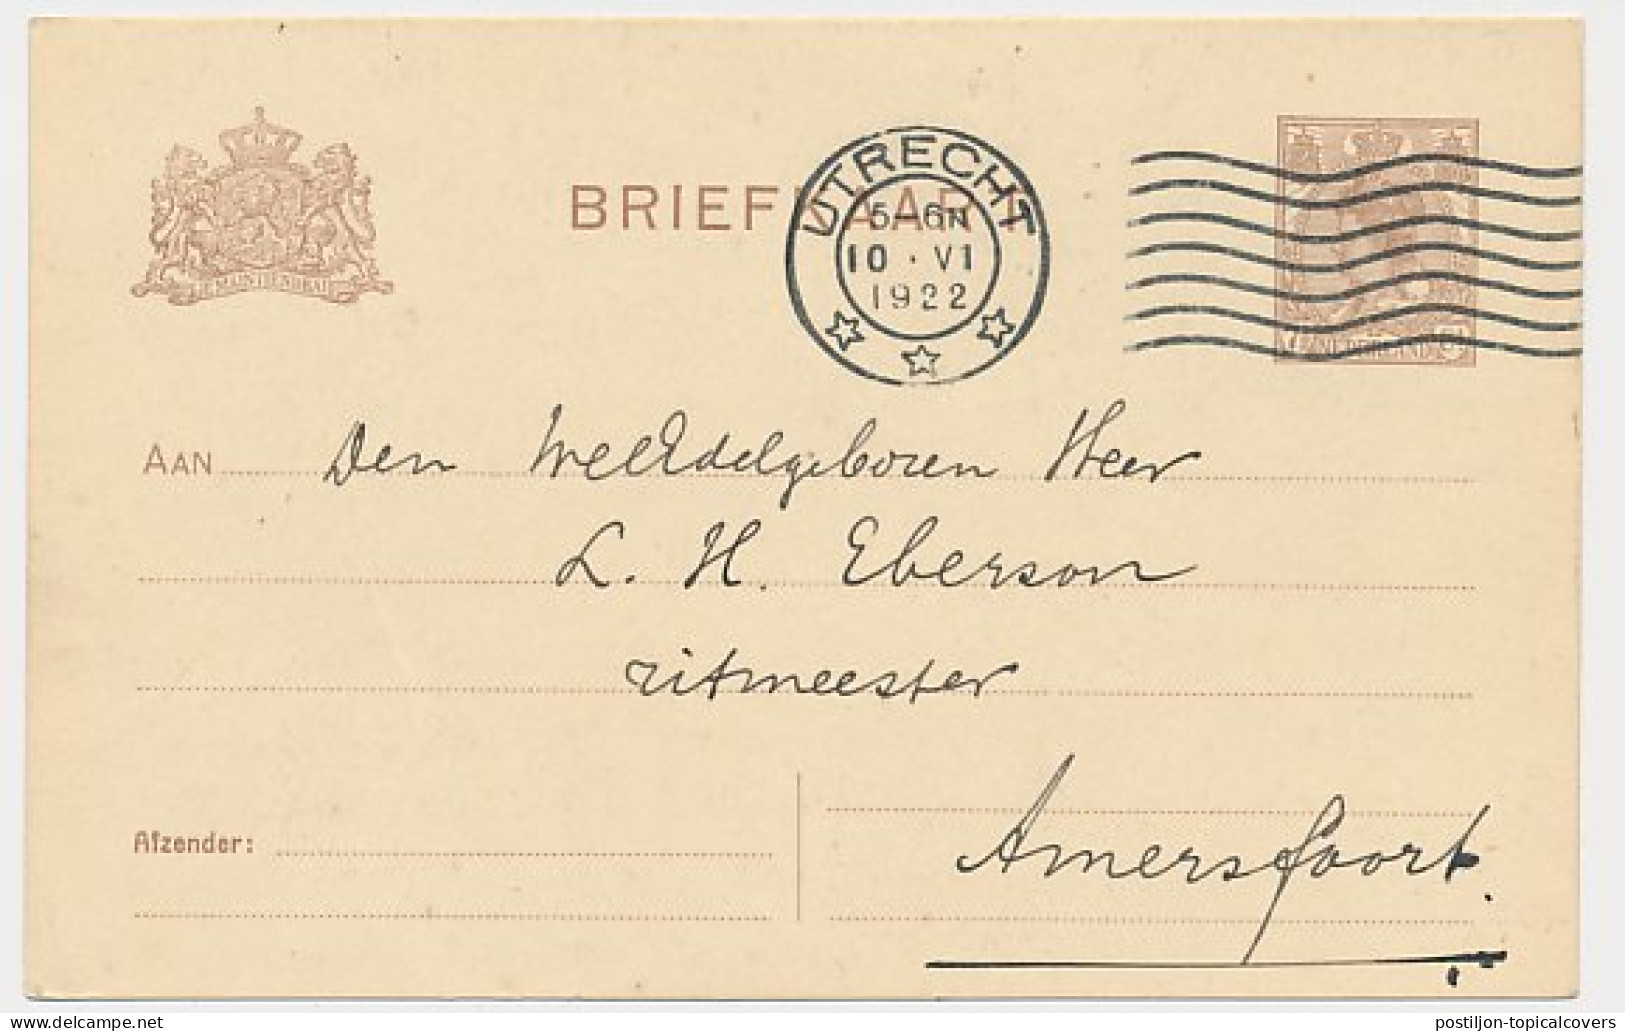 JE MAINTIENDRAI
BRIEFKAART
UTRECHT
5-6N
10·VI
1922
7½ NEDERLAND Ct
AAN Den WelEdelgeboren Heer
L. H. Eberson
ritmeester
Afzender:
Amersfoort.
postiljon-topicalcovers